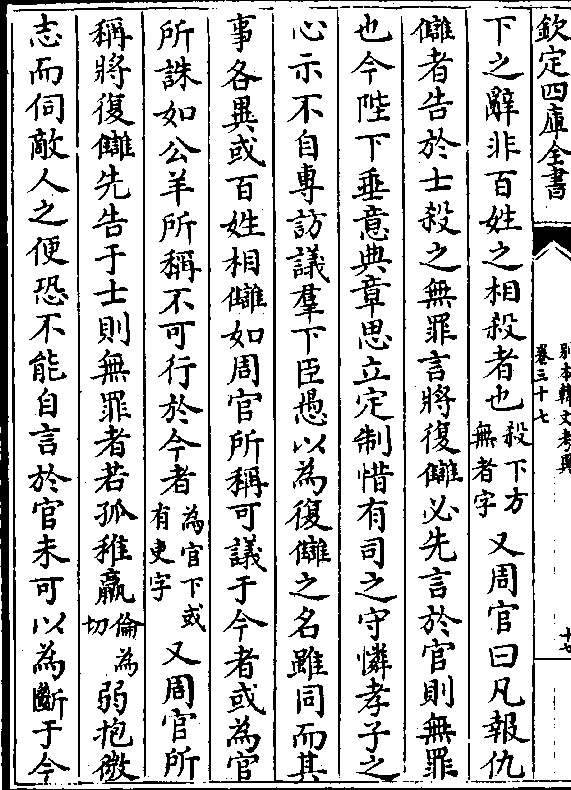 欽定四庫全書
別本韓文考異
卷三十七
十七
下之辭非百姓之相殺者也殺下方無者字又周官曰凡報仇
讎者告於士殺之無罪言將復讎必先言於官則無罪
也今陛下垂意典章思立定制惜有司之守憐孝子之
心示不自專訪議羣下臣愚以為復讎之名雖同而其
事各異或百姓相讎如周官所稱可議于今者或為官
所誅如公羊所稱不可行於今者為官下或有吏字又周官所
稱將復讎先告于士則無罪者若孤稚羸倫為切弱抱微
志而伺敵人之便恐不能自言於官未可以為斷于今